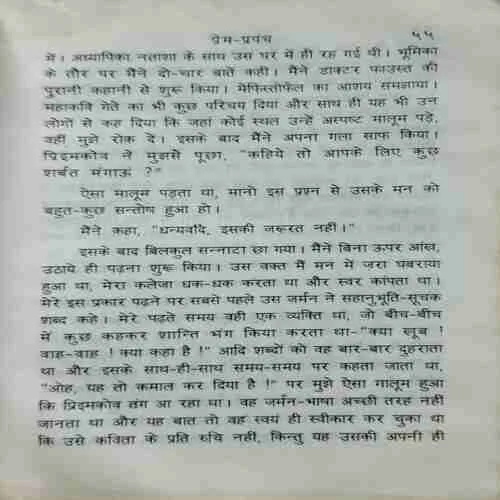 प्रेम-प्रपंच ५५
में। अध्यापिका नताशा के साथ उस घर में ही रह गई थी। भूमिका
के तौर पर मैंने दो-चार बातें कहीं। मैंने डाक्टर फाउस्त की
पुरानी कहानी से शुरू किया। मेफिस्तोफेल का आशय समझाया।
महाकवि गेते का भी कुछ परिचय दिया और साथ ही यह भी उन
लोगों से कह दिया कि जहां कोई स्थल उन्हें अस्पष्ट मालूम पड़े,
वहीं मुझे रोक दें। इसके बाद मैंने अपना गला साफ किया।
प्रिइमकोव ने मुझसे पूछा, "कहिये तो आपके लिए कुछ
शर्बत मंगाऊं ?"
ऐसा मालूम पड़ता था, मानो इस प्रश्न से उसके मन को
बहुत-कुछ सन्तोष हुआ हो।
मैंने कहा, "धन्यवाद, इसकी जरूरत नहीं।"
इसके बाद बिलकुल सन्नाटा छा गया। मैंने बिना ऊपर आंख,
उठाये ही पढ़ना शुरू किया। उस वक्त मैं मन में ज़रा घबराया
हुआ था, मेरा कलेजा धक-धक करता था और स्वर कांपता था।
मेरे इस प्रकार पढ़ने पर सबसे पहले उस जर्मन ने सहानुभूति-सूचक
शब्द कहे। मेरे पढ़ते समय वही एक व्यक्ति था, जो बीच-बीच
में कुछ कहकर शान्ति भंग किया करता था-"क्या खूब !
वाह-वाह ! क्या कहा है !" आदि शब्दों को वह बार-बार दुहराता
था और इसके साथ-ही-साथ समय-समय पर कहता जाता था,
"ओह, यह तो कमाल कर दिया है !" पर मुझे ऐसा मालूम हुआ
कि प्रिइमकोव तंग आ रहा था। वह जर्मन-भाषा अच्छी तरह नहीं
जानता था और यह बात तो वह स्वयं ही स्वीकार कर चुका था
कि उसे कविता के प्रति रुचि नहीं, किन्तु यह उसकी अपनी ही